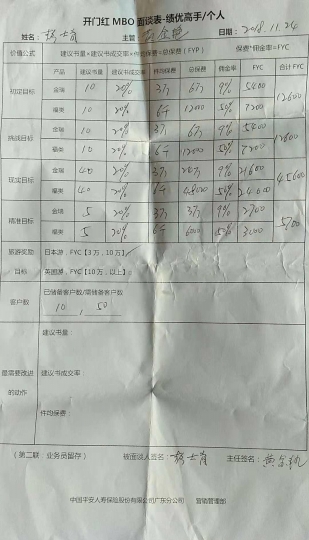 开门红 MBO 面谈表-绩优高手/个人
姓名： 主管 日期：2018.11.24
价值公式 建议书量*建议书成交率*件均保费=总保费（FYP） 保费*佣金率=FYC
产品 建议书量 建议书成交率 件均保费 总保费 佣金率 FYC 合计FYC
初定目标 金瑞 10 20% 3万 6万 9% 5400 12600
福类 10 20% 6千 12000 7200
挑战目标 金瑞 10 20% 3万 6万 9% 5400 12600
福类 10 20% 6千 12000 7200
现实目标 金瑞 40 20% 3万 24万 9% 21600 45600
福类 40 20% 6千 48000 50% 24000
精准目标 金瑞 5 20% 3万 3万 9% 2700 5700
福类 5 20% 6千 6000 3000
旅游奖励 日本游，FYC【3万，10万】
目标 英国游，FYC【10万，以上】
客户数 已储备客户数/需储备客户数
10 , 50
建议书量：
最需要改进 建议书成交率：
的动作
件均保费：
（第二联：业务员留存） 被面谈人签名： 主任签名：
中国平安人寿保险股份有限公司广东分公司 营销管理部